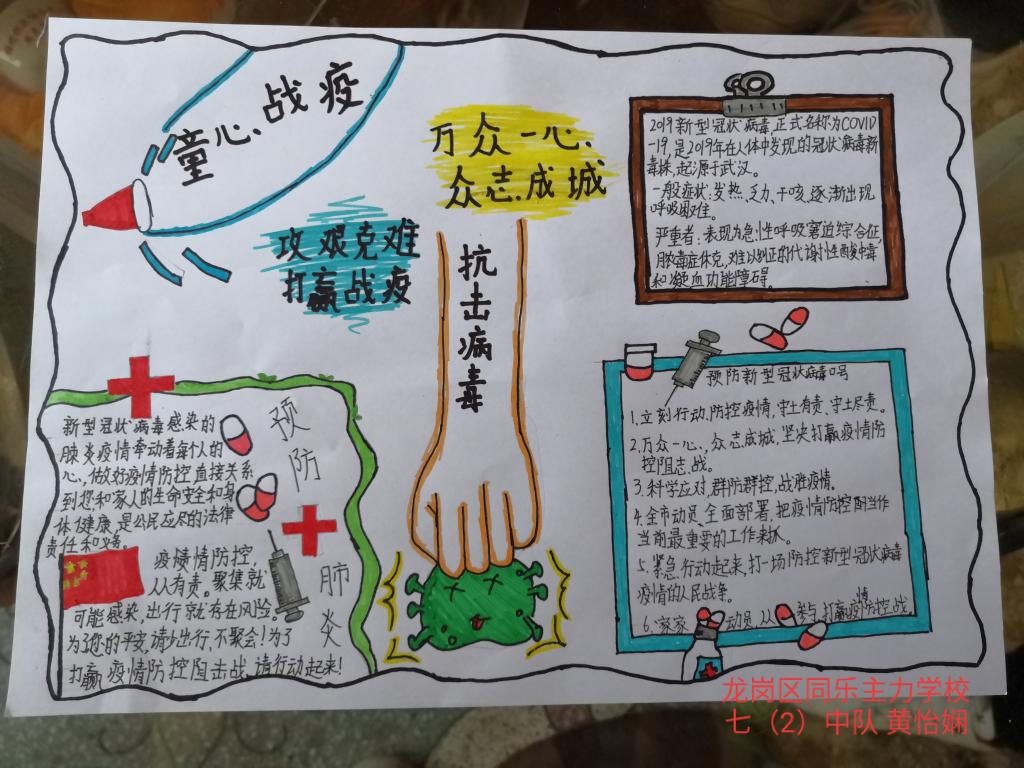 童心、战疫
攻艰克难
打赢战疫
万众一心、
众志成城
抗击病毒
2019新型冠状病毒,正式名称为COVID
-19,是2019年在人体中发现的冠状病毒新
毒株,起源于武汉。
一般症状:发热、乏力、干咳、逐渐出现
呼吸困难。
严重者:表现为急性呼吸窘迫综合征,
脓毒症休克,难以纠正的代谢性酸中毒
和凝血功能障碍。
新型冠状病毒感染的
肺炎疫情牵动着每个人的
心,做好疫情防控直接关系
到您和家人的生命安全和身
体健康,是公民应尽的法律
责任和义务。
疫情防控,
人人有责。聚集就
可能感染,出行就存在风险。
为了您的平安,请少出行,不聚会!为了
打赢疫情防控阻击战,请行动起来!
预防
肺炎
预防新型冠状病毒口号
1.立刻行动,防控疫情,守土有责、守土尽责。
2.万众一心、众志成城,坚决打赢疫情防
控阻击战。
3.科学应对,群防群控,战胜疫情。
4.全市动员、全面部署,把疫情防控当作
当前最重要的工作来抓。
5.紧急行动起来,打一场防控新型冠状病毒
疫情的人民战争。
6.家家动员、人参与,打赢疫情防控战
龙岗区同乐主力学校
七（2）中队 黄怡娴